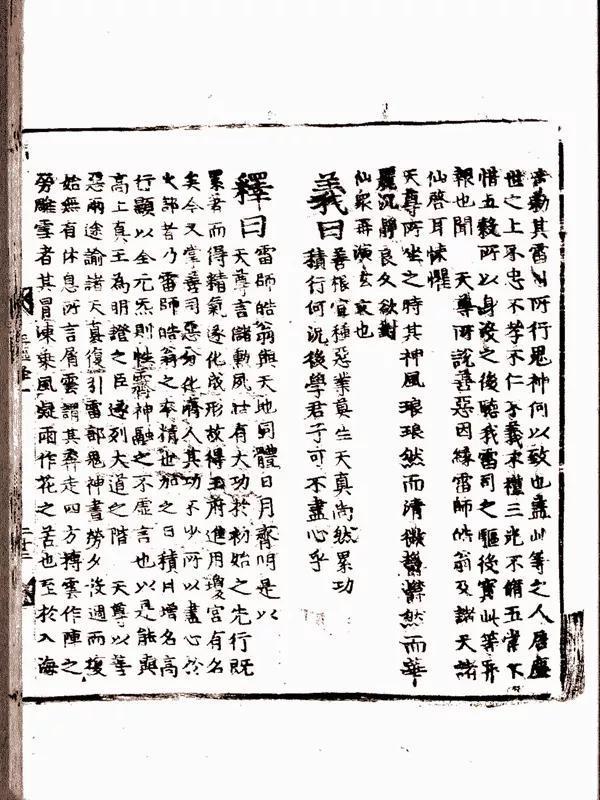 動其雷司所行鬼神何以致也蓋此等之人居塵
世之上不忠不孝不仁不義不禮三光不脩五常不
惜五穀所以身沒之後聽我雷司之驅役實此等罪
報也聞 天尊所說善惡因緣雷師皓翁及諸天諸
仙啓耳悚懼
天尊所坐之時其神風琅琅然而清微鬱鬱然而華
麗沉靜良久欲對
仙眾再演玄哀也
義曰善根宜種惡業莫生天真尚然累功
積行何況後學君子可不盡心乎
釋曰雷師皓翁與天地同體日月齊明是以
天尊言儲勳夙壯有大功於初始之先行既
累著而得精氣遂化成形故得玉府進用瓊宮有名
矣今又掌善司惡分化濟人其功不少所以盡心於
火部昔乃雷師皓翁之奉精世加之日積月增名高
行顯以全元炁則性霽神融之不虛言也以是能與
高上真王為明證之臣遂列大道之階 天尊以等
惡兩途諭諸天真復引雷部鬼神晝勞夕沒週而復
始無有休息所言屑雲謂其奔走四方摶雲作陣之
勞雕雪者其冒凍乘風凝雨作花之苦也至於入海